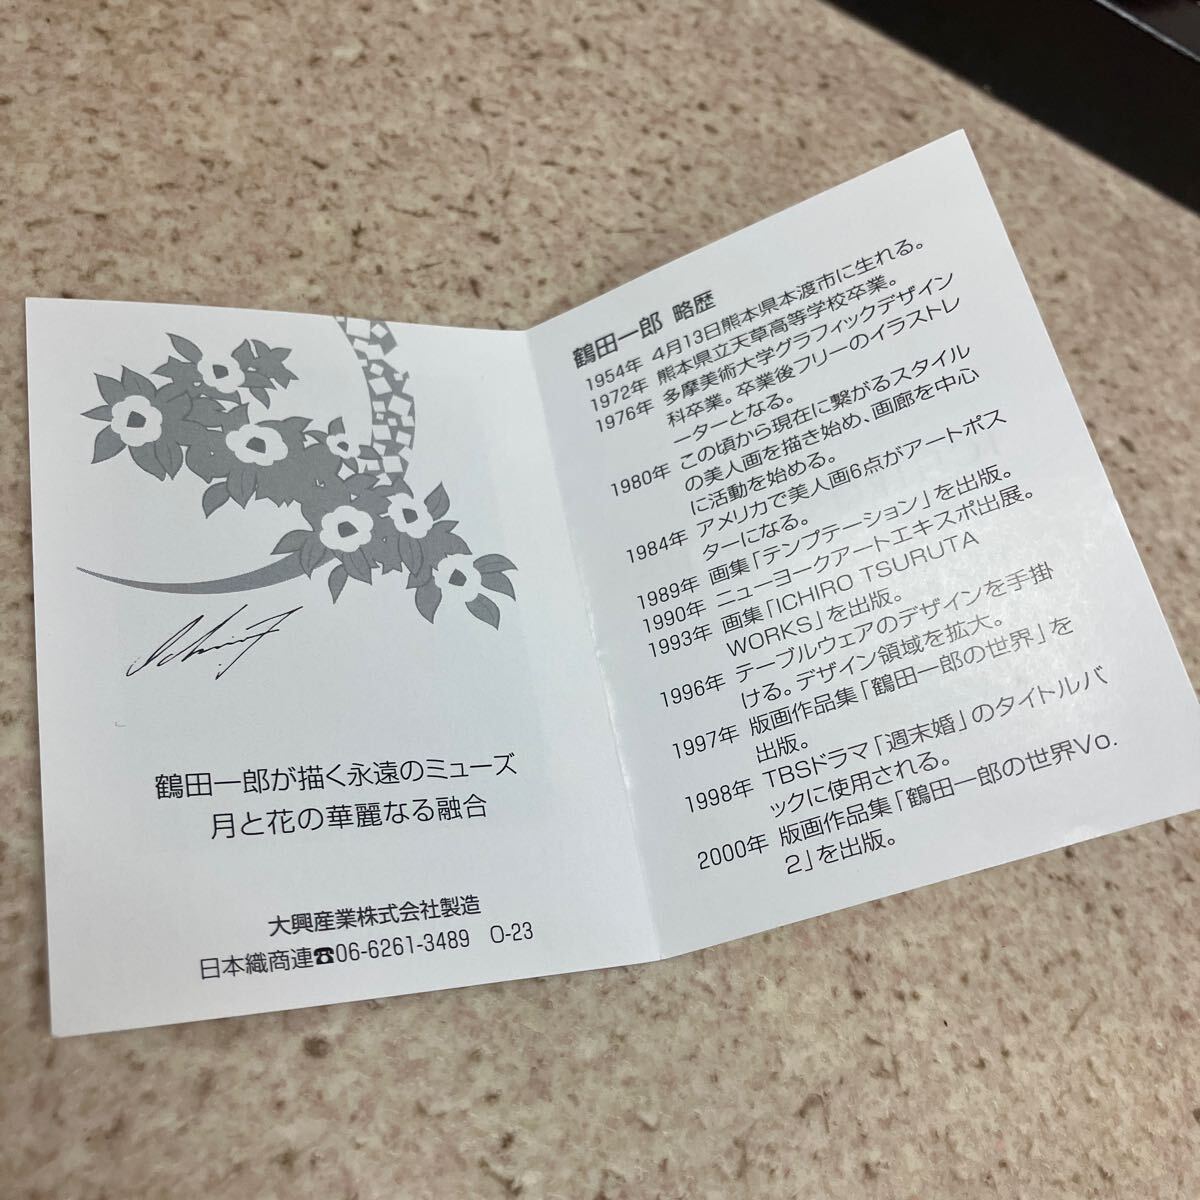 鶴田一郎が描く永遠のミューズ
月と花の華麗なる融合
大興産業株式会社製造
日本織商連☎06-6261-3489 O-23
鶴田一郎 略歴
1954年 4月13日熊本県本渡市に生れる。
1972年 熊本県立天草高等学校卒業。
1976年 多摩美術大学グラフィックデザイン
科卒業。卒業後フリーのイラストレ
ーターとなる。
1980年 この頃から現在に繋がるスタイル
の美人画を描き始め、画廊を中心
に活動を始める。
1984年 アメリカで美人画6点がアートポス
ターになる。
1989年 画集「テンプテーション」を出版。
1990年 ニューヨークアートエキスポ出展。
1993年 画集「ICHIRO TSURUTA
WORKS」を出版。
1996年 テーブルウェアのデザインを手掛
ける。デザイン領域を拡大。
1997年 版画作品集「鶴田一郎の世界」を
出版。
1998年 TBSドラマ「週末婚」のタイトルバ
ックに使用される。
2000年 版画作品集「鶴田一郎の世界Vo.
2」を出版。